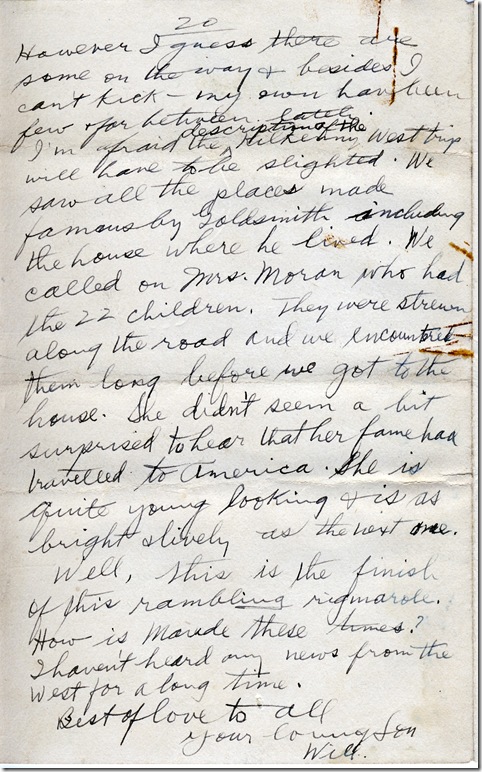 20
However I guess there are
some on the way & besides I
can't kick - my own have been
few & far between lately.
description of the
I'm afraid the Kilkenny West trip
will have to be slighted. We
saw all the places made
famous by Goldsmith including
the house where he lived. We
called on Mrs. Moran who had
the 22 children. They were strewn
along the road and we encountred
them long before we got to the
house. She didn't seem a bit
surprised to hear that her fame had
travelled to America. She is
quite young looking & is as
bright & lively as the next one.
Well, this is the finish
of this rambling rigmarole.
How is Maude these times?
I haven't heard any news from the
West for a long time.
Best of love to all
Your loving Son
Will.